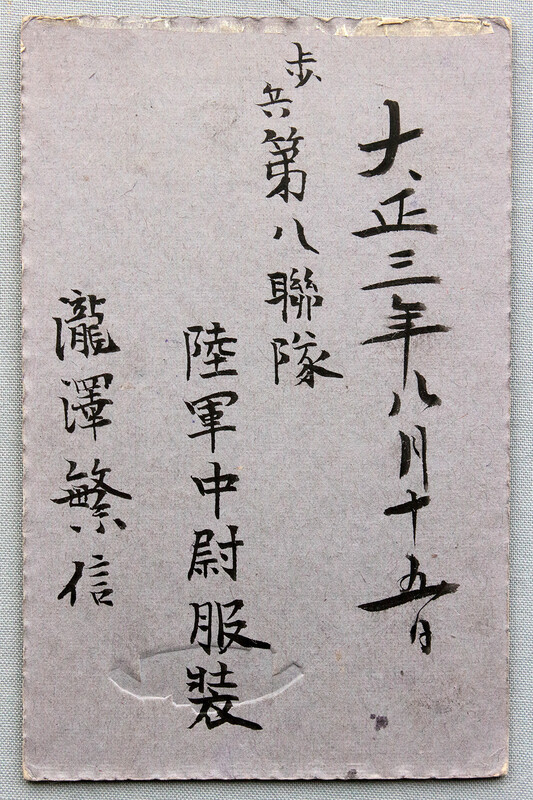 大正三年八月十五日
歩兵第八聯隊
陸軍中尉服装
瀧澤繁信